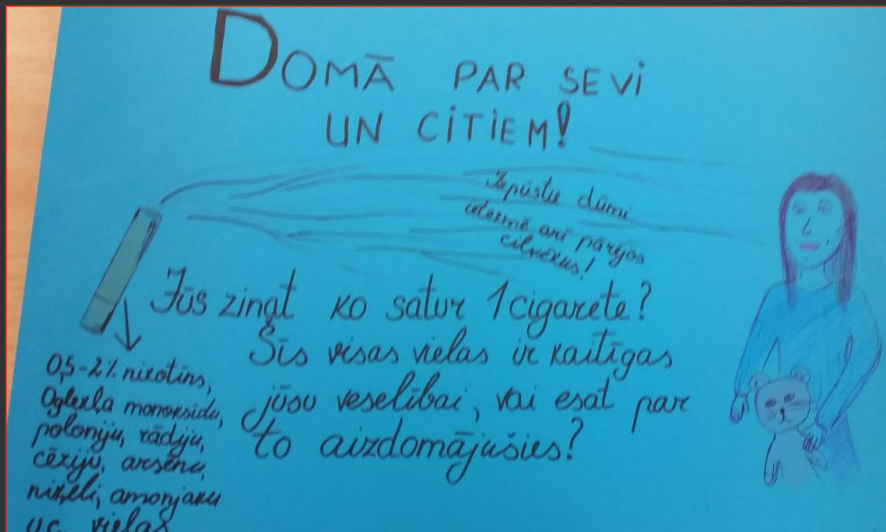 DOMĀ PAR SEVI
UN CITIEM!
Izpūstie dūmi
ietekmē arī pārējos
cilvēkus!
Jūs zinat ko satur 1 cigarete?
Šīs visas vielas ir kaitīgas
jūsu veselībai, vai esat par
to aizdomājušies?
0,5-2% nikotīns,
Oglekļa monoksīdu,
poloniju, rādiju,
cēziju, arsēnu,
niķeli, amonjaku
u.c. vielas